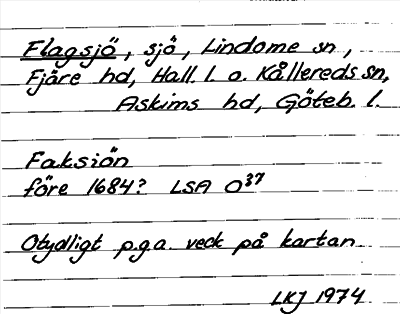 Flagsjö, sjö, Lindome sn,
Fjäre hd, Hall. l. o. Kållereds sn,
Askims hd, Göteb. l.
Faksiön
före 1684? LSA O37
Otydligt p.g.a. veck på kartan.
LKJ 1974.